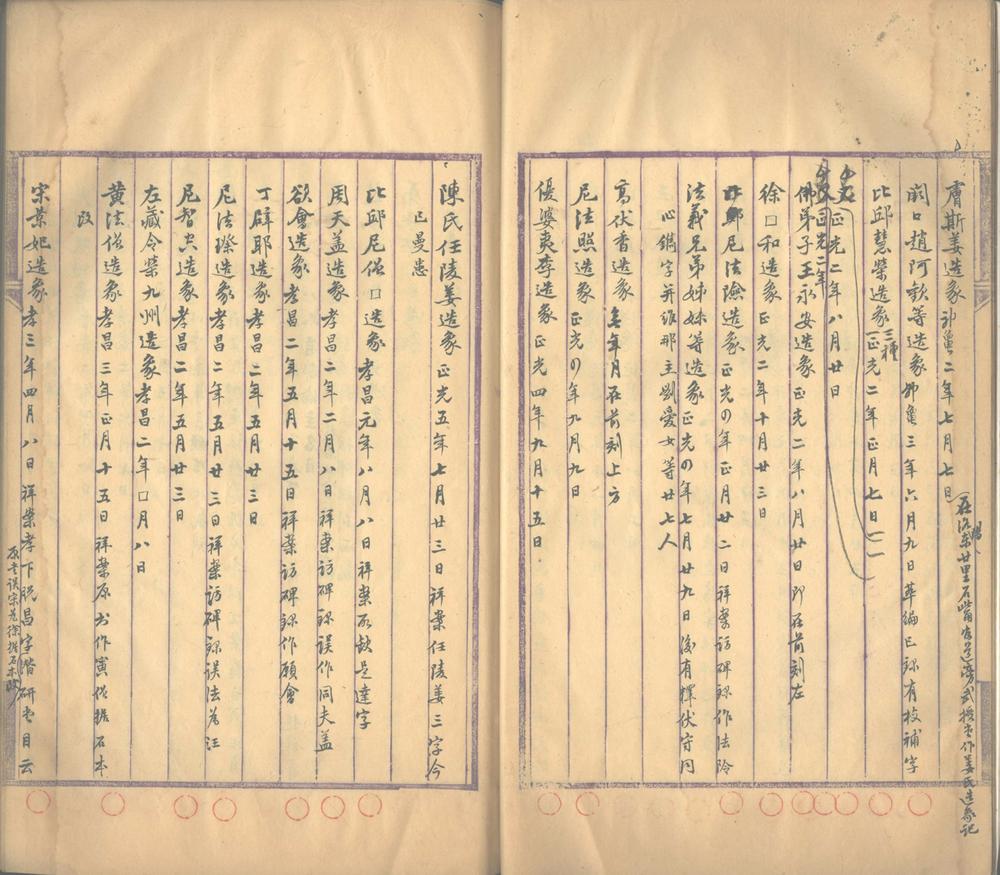 膚斯姜造象神龜二年七月七日
在洛陽東廿里石嘴古道旁武授堂作姜氏造象記
閻口趙阿歡等造象神龜三年六月九日萃編已錄有校補字
比邱慧榮造象三種正光二年正月七日
又正光二年八月廿日
又正光二年
佛弟子王永安造象正光二年八月廿日即在前刻左
徐口和造象正光二年十月廿三日
比邱尼法陰造象正光の年正月廿二日祥案訪碑錄作法陰
法義兄弟姊妹等造象正光の年七月廿九日後有釋伏守同
心鐫字并維那主劉愛女等廿七人
高伏香造象無年月在前刻上方
尼法照造象正光の年九月九日
優婆夷李造象正光四年九月十五日
陳氏任陵姜造象正光五年七月廿三日祥案任陵姜三字今
已曼患
比邱尼僧口造象孝昌元年八月八日祥案所缺是達字
周天盖造象孝昌二年二月八日祥案訪碑錄誤作同夫盖
欲會造象孝昌二年五月十五日祥案訪碑錄作願會
丁辟耶造象孝昌二年五月廿三日
尼法際造象孝昌二年五月廿三日祥案訪碑錄誤法為江
尼智空造象孝昌二年五月廿三日
左藏令榮九州造象孝昌二年口月八日
黃法僧造象孝昌三年正月十五日祥案原書作寅僧據石本
改
宋景妃造象孝三年四月八日祥案孝下脫昌字階研堂目云
原書誤宋為徐據石本改